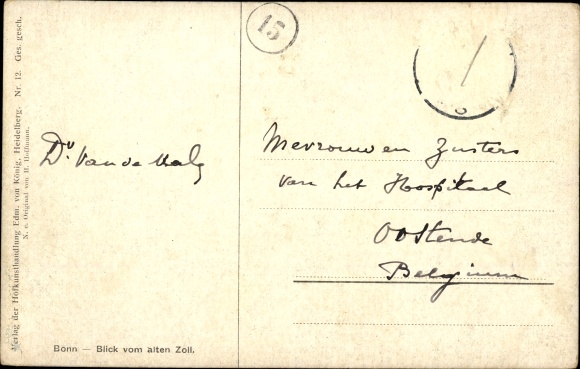 15
Verlag der Hofkunsthandlung Edm. von König, Heidelberg. Nr. 12. Ges. gesch.
N. e. Original von H. Hoffmann.
Dr Van de
Mevrouwen Zusters
van het Hospitaal
Oostende
Belgium
Bonn — Blick vom alten Zoll.